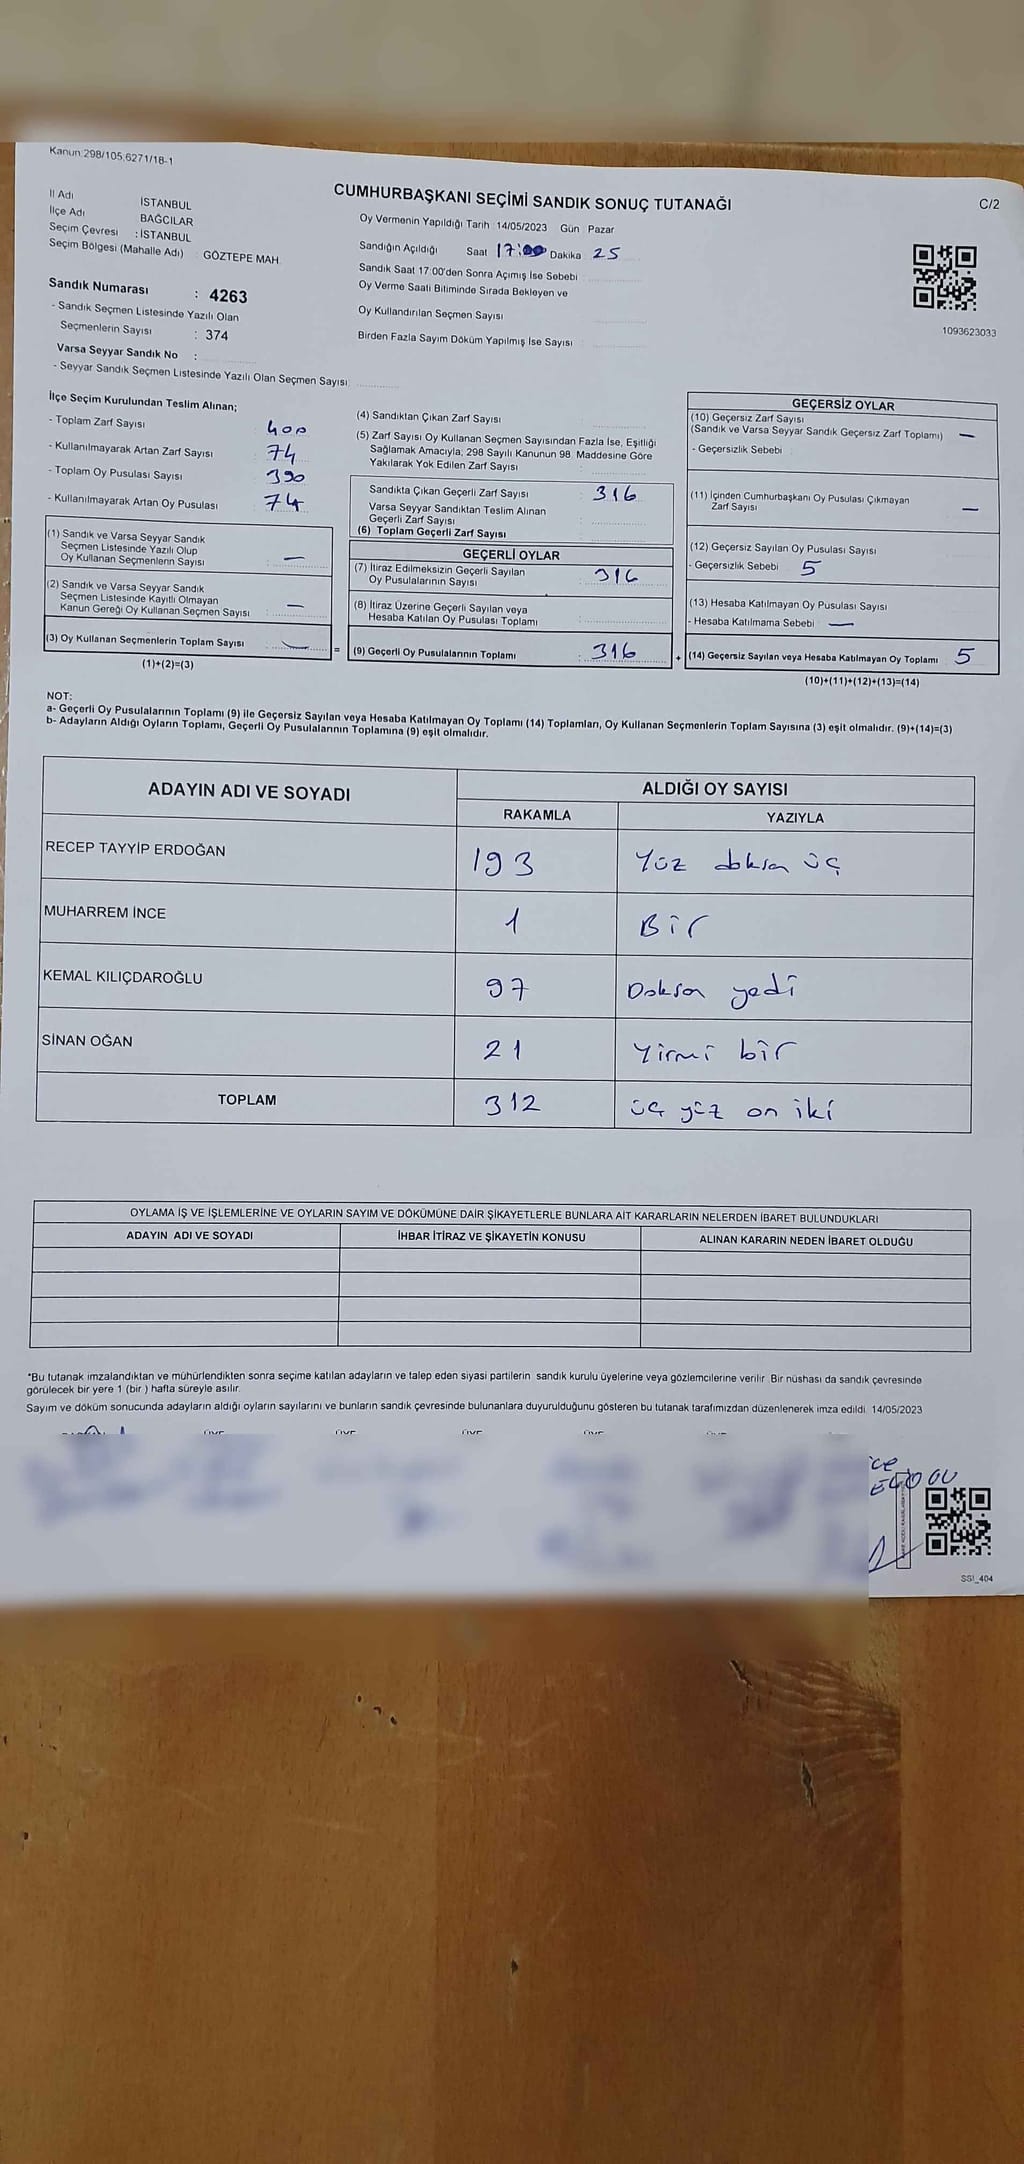 Kanun:298/105,6271/18-1
CUMHURBAŞKANI SEÇİMİ SANDIK SONUÇ TUTANAĞI
C/2
İl Adı İSTANBUL
İlçe Adı BAĞCILAR
Seçim Çevresi : İSTANBUL
Seçim Bölgesi (Mahalle Adı) : GÖZTEPE MAH.
Oy Vermenin Yapıldığı Tarih : 14/05/2023 Gün : Pazar
Sandığın Açıldığı Saat 17:00 Dakika 25
Sandık Saat 17:00'den Sonra Açımış İse Sebebi
Oy Verme Saati Bitiminde Sırada Bekleyen ve
Oy Kullandırılan Seçmen Sayısı
Birden Fazla Sayım Döküm Yapılmış İse Sayısı
1093623033
Sandık Numarası : 4263
- Sandık Seçmen Listesinde Yazılı Olan
Seçmenlerin Sayısı : 374
Varsa Seyyar Sandık No :
- Seyyar Sandık Seçmen Listesinde Yazılı Olan Seçmen Sayısı:
İlçe Seçim Kurulundan Teslim Alınan;
- Toplam Zarf Sayısı 400
- Kullanılmayarak Artan Zarf Sayısı 74
- Toplam Oy Pusulası Sayısı 390
- Kullanılmayarak Artan Oy Pusulası 74
(1) Sandık ve Varsa Seyyar Sandık
Seçmen Listesinde Yazılı Olup
Oy Kullanan Seçmenlerin Sayısı : —
(2) Sandık ve Varsa Seyyar Sandık
Seçmen Listesinde Kayıtlı Olmayan
Kanun Gereği Oy Kullanan Seçmen Sayısı : —
(3) Oy Kullanan Seçmenlerin Toplam Sayısı : — =
(1)+(2)=(3)
(4) Sandıktan Çıkan Zarf Sayısı
(5) Zarf Sayısı Oy Kullanan Seçmen Sayısından Fazla İse, Eşitliği
Sağlamak Amacıyla; 298 Sayılı Kanunun 98. Maddesine Göre
Yakılarak Yok Edilen Zarf Sayısı
Sandıkta Çıkan Geçerli Zarf Sayısı : 316
Varsa Seyyar Sandıktan Teslim Alınan
Geçerli Zarf Sayısı
(6) Toplam Geçerli Zarf Sayısı
GEÇERLİ OYLAR
(7) İtiraz Edilmeksizin Geçerli Sayılan
Oy Pusulalarının Sayısı : 316
(8) İtiraz Üzerine Geçerli Sayılan veya
Hesaba Katılan Oy Pusulası Toplamı
(9) Geçerli Oy Pusulalarının Toplamı : 316 +
GEÇERSİZ OYLAR
(10) Geçersiz Zarf Sayısı
(Sandık ve Varsa Seyyar Sandık Geçersiz Zarf Toplamı) —
- Geçersizlik Sebebi
(11) İçinden Cumhurbaşkanı Oy Pusulası Çıkmayan
Zarf Sayısı —
(12) Geçersiz Sayılan Oy Pusulası Sayısı
- Geçersizlik Sebebi 5
(13) Hesaba Katılmayan Oy Pusulası Sayısı
- Hesaba Katılmama Sebebi —
(14) Geçersiz Sayılan veya Hesaba Katılmayan Oy Toplamı 5
(10)+(11)+(12)+(13)=(14)
NOT:
a- Geçerli Oy Pusulalarının Toplamı (9) ile Geçersiz Sayılan veya Hesaba Katılmayan Oy Toplamı (14) Toplamları, Oy Kullanan Seçmenlerin Toplam Sayısına (3) eşit olmalıdır. (9)+(14)=(3)
b- Adayların Aldığı Oyların Toplamı, Geçerli Oy Pusulalarının Toplamına (9) eşit olmalıdır.
ADAYIN ADI VE SOYADI ALDIĞI OY SAYISI
RAKAMLA YAZIYLA
RECEP TAYYİP ERDOĞAN 193 Yüz doksan üç
MUHARREM İNCE 1 Bir
KEMAL KILIÇDAROĞLU 97 Doksan yedi
SİNAN OĞAN 21 Yirmi bir
TOPLAM 312 üç yüz on iki
OYLAMA İŞ VE İŞLEMLERİNE VE OYLARIN SAYIM VE DÖKÜMÜNE DAİR ŞİKAYETLERLE BUNLARA AİT KARARLARIN NELERDEN İBARET BULUNDUKLARI
ADAYIN ADI VE SOYADI İHBAR İTİRAZ VE ŞİKAYETİN KONUSU ALINAN KARARIN NEDEN İBARET OLDUĞU
*Bu tutanak imzalandıktan ve mühürlendikten sonra seçime katılan adayların ve talep eden siyasi partilerin sandık kurulu üyelerine veya gözlemcilerine verilir. Bir nüshası da sandık çevresinde
görülecek bir yere 1 (bir ) hafta süreyle asılır.
Sayım ve döküm sonucunda adayların aldığı oyların sayılarını ve bunların sandık çevresinde bulunanlara duyurulduğunu gösteren bu tutanak tarafımızdan düzenlenerek imza edildi. 14/05/2023
SSI_404